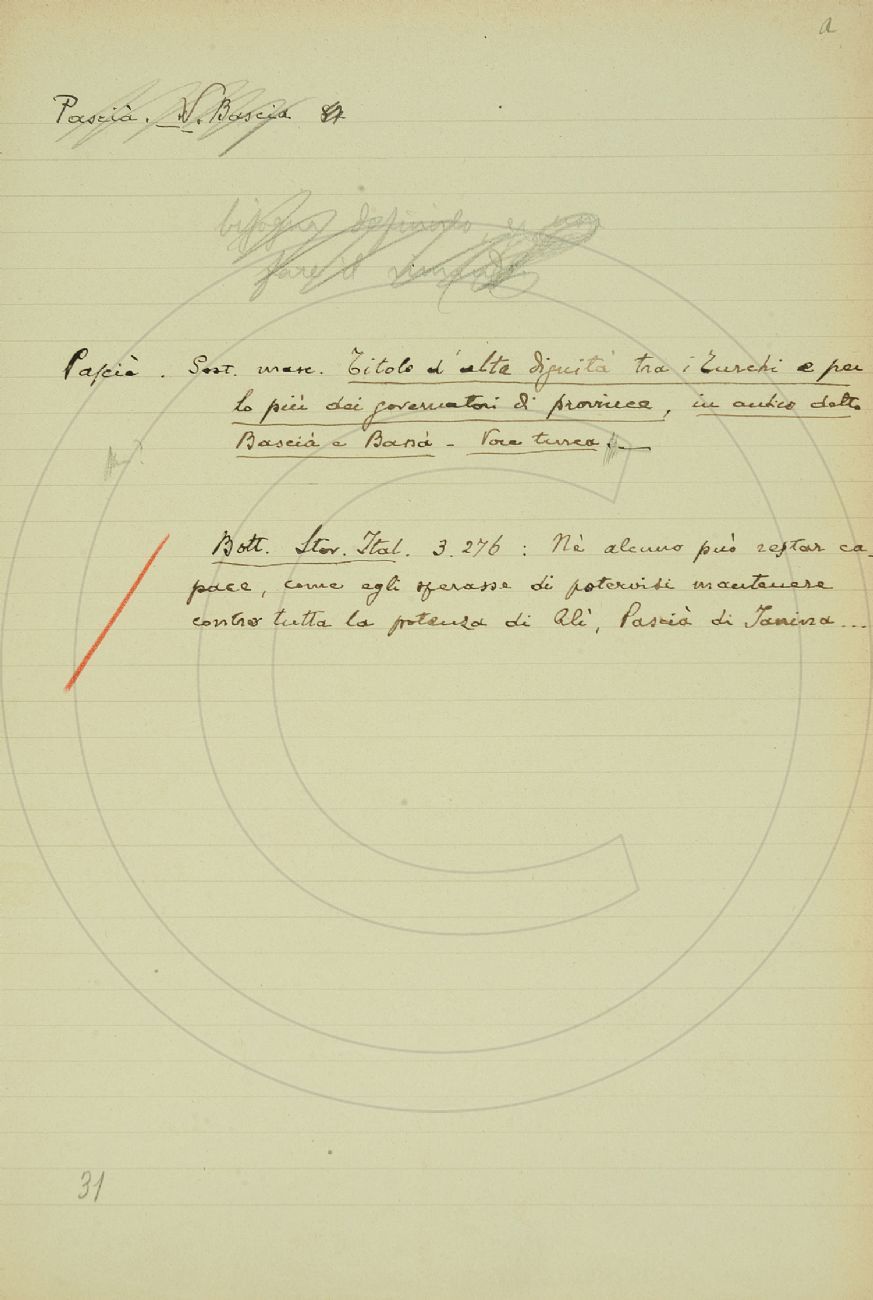 a
Pascià. V. Bascià
bisogna definirlo, e non
fare il rimando
Pascià. Sost. masc. Titolo d'alta dignità tra i Turchi e per
lo più dei governatori di province, in antico detto
Bascià e Bassà - Voce turca. —
Bott. Stor. Ital. 3. 276 : Nè alcuno può restar ca-
pace, come egli sperasse di potervisi mantenere
contro tutta la potenza di Alì, Pascià di Janina...
31